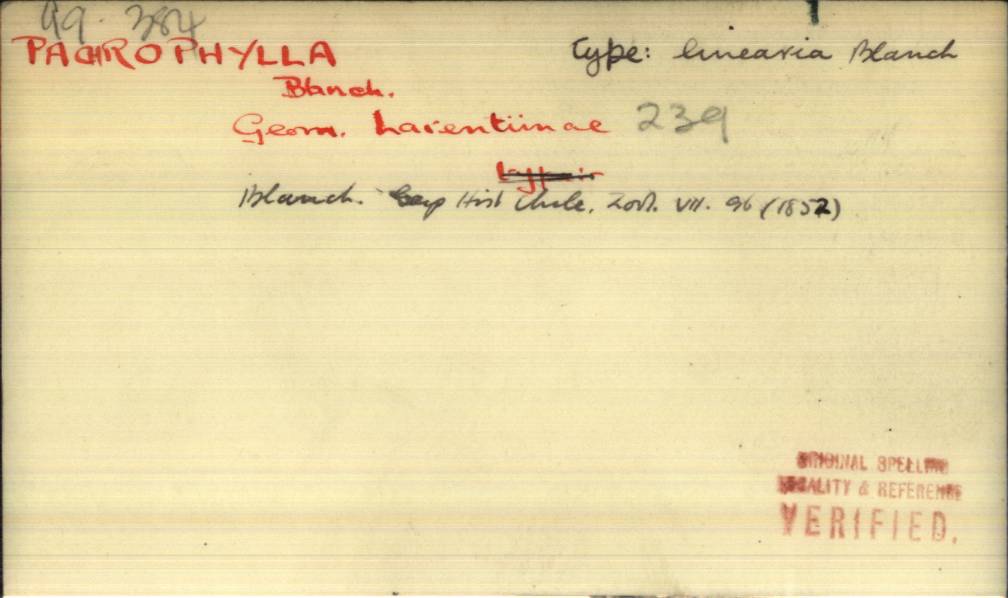 99. 384
PACHROPHYLLA
Type: linearia Blanch
Blanch.
Geom. Larentiinae 239
Blanch. Gay Hist Chile. Zool. VII. 96 (1852)
ORIGINAL SPELLING
LOCALITY & REFERENCE
VERIFIED.